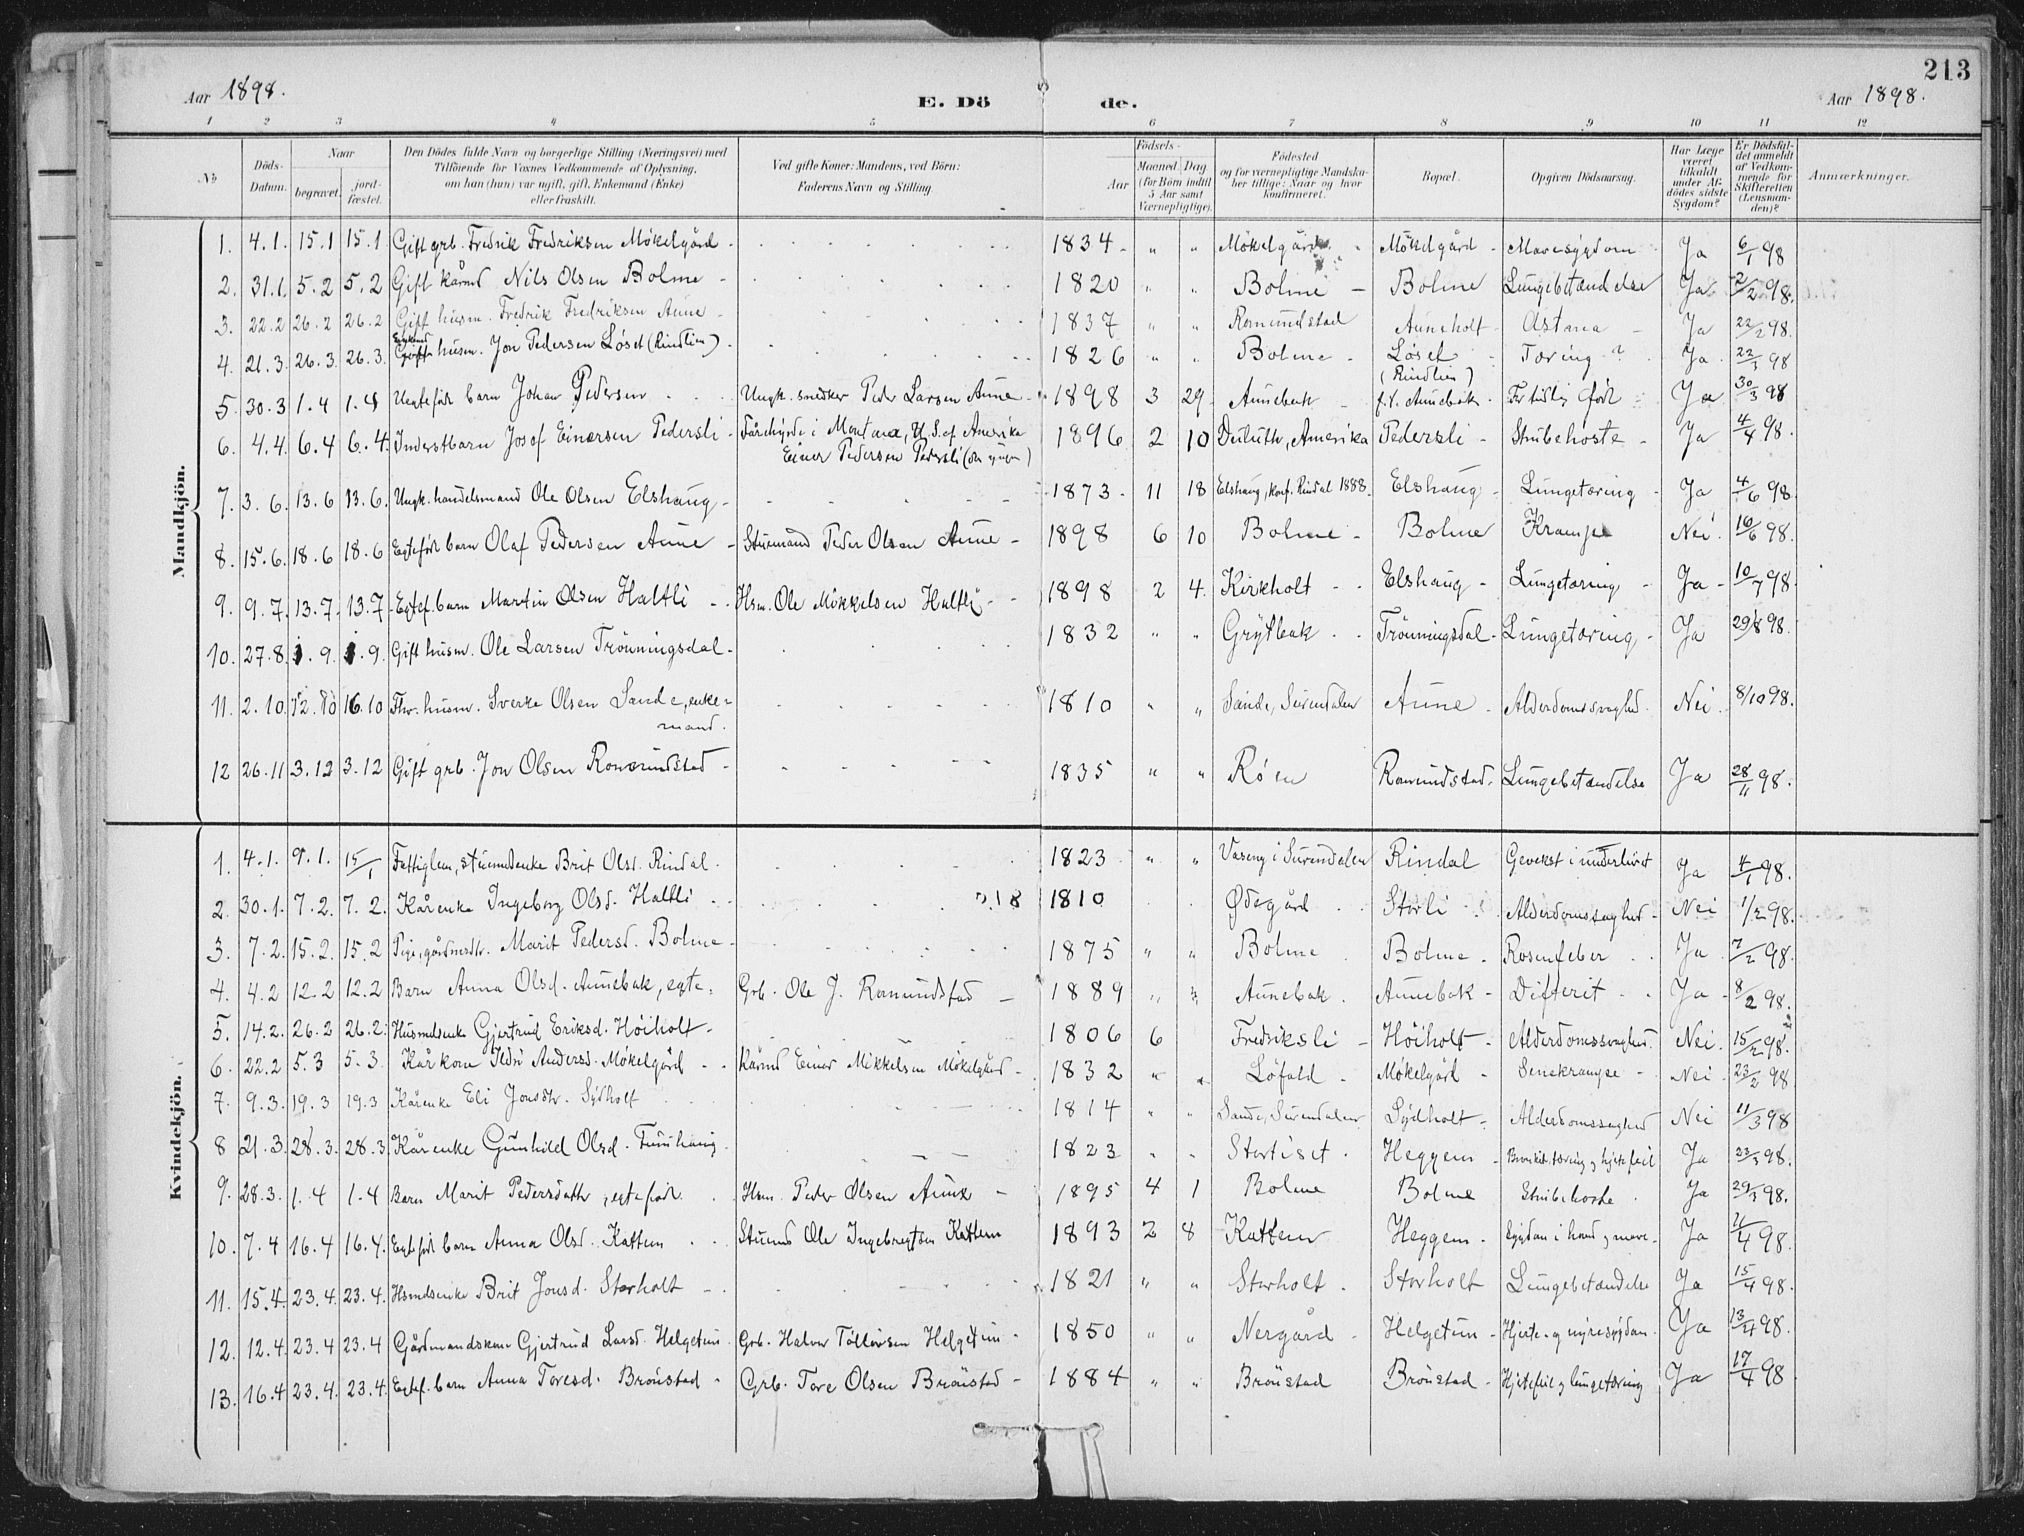 213
Aar 1898.
E. Dö de.
Aar 1898.
1 2 3 4 5 6 7 8 9 10 11 12
No.
Döds-Datum.
Naar
begravet.
jord-fæstet.
Den Dödes fulde Navn og borgerlige Stilling (Næringsvei) med
Tilföiende for Voxnes Vedkommende af Oplysning,
om han (hun) var ugift, gift, Enkemand (Enke)
eller fraskilt.
Ved gifte Koner: Mandens, ved Börn:
Faderens Navn og Stilling.
Födsels-
Aar
Maaned Dag
(for Börn indtil
5 Aar samt
Værnepligtige).
Födested
og for værnepligtige Mandskaber tillige: Naar og hvor
konfirmeret.
Bopæl.
Opgiven Dödsaarsag.
Har Læge været tilkaldt under Afdödes sidste Sygdom?
Er Dödsfaldet anmeldt af Vedkommende for Skifteretten (Lensmanden)?
Anmærkninger.
Mandkjön.
1. 4.1. 15.1 15.1 Gift grb. Fredrik Fredriksen Mökelgård - 1834 - " " Mökelgård - Mökelgård - Mavesygdom Ja 6/1 98
2. 31.1. 5.2 5.2 Gift kårmd Nils Olsen Bolme - 1820 " " Bolme - Bolme Lungebetændelse Ja 2/2 98.
3. 22.2 26.2 26.2 Gift husm. Fredrik Fredriksen Aune - 1837 " " Romundstad Auneholt - Astma - Ja 22/2 98.
4. 21.3. 26.3. 26.3. Gift husm. Jon Pedersen Løset (Rindlien) - 1826 " " Bolme - Løset (Rindlien) Tæring ? Ja 22/3 98
5. 30.3 1.4 1.4 Uegtefödt barn Johan Pedersen Ungk. snedker Peder Larsen Aune - 1898 3 29 Aunebak - f.t. Aunebak - For tidlig født Ja 30/3 98
6. 4.4. 6.4 6.4. Inderstbarn Josef Einersen Pedersli - Fårehyrde i Montana, U.S. af Amerika
Einer Pedersen Pedersli (den yngre) 1896 2 10 Duluth, Amerika Pedersli - Strubehoste - Ja 4/4 98.
7. 3.6. 13.6 13.6. Ungk. handelsmand Ole Olsen Elshaug - 1873 - 11 18 Elshaug, konf. Rindal 1888. Elshaug - Lungetæring - Ja 4/6 98.
8. 15.6. 18.6 18.6 Egtefödt barn Olaf Pedersen Aune - Stuemand Peder Olsen Aune - 1898 6 10 Bolme - Bolme Krampe Nei. 16/6 98.
9. 9.7. 13.7. 13.7 Egtef. barn Martin Olsen Haltli - Hsm. Ole Mikkelsen Haltli - 1898 2 4. Kirkholt - Elshaug - Lungetæring - Ja - 10/7 98.
10. 27.8. 1.9. 1.9. Gift husm. Ole Larsen Trönningsdal - 1832 " " Grytbak - Trönningsdal - Lungetæring - Ja 29/8 98.
11. 2.10. 12.10 16.10 Fhv. husm. Sverke Olsen Sande, enke=
mand. 1810 " " Sande, Surendalen Aune - Alderdomssvaghed - Nei. 8/10 98.
12 26.11 3.12 3.12 Gift grb. Jon Olsen Romundstad - 1835 " " Røen Romundstad. Lungebetændelse Ja 28/11 98.
Kvindekjön.
1. 4.1. 9.1. 15/1 Fattiglem, stuemdsenke Brit Olsd. Rindal. 1823 " " Vaseng i Surendalen Rindal Gevekst i underlivet Ja 4/1 98.
2. 30.1. 7.2. 7.2. Kårenke Ingeborg Olsd. Haltli 1810 Ødegård Storli Alderdomssvaghed - Nei 1/2 98.
3. 7.2. 15.2. 15.2 Pige, gårdmdsdtr. Marit Pedersd. Bolme - 1875 " " Bolme Bolme - Rosenfeber Ja 7/2 98.
4. 4.2 12.2 12.2 Barn Anna Olsd. Aunebak, egte= Grb. Ole J. Romundstad - 1889 " " Aunebak. Aunebak - Difterit Ja - 8/2 98.
5. 14.2. 26.2 26.2. Husmdsenke Gjertrud Eriksd. Höiholt - 1806 6 Fredriksli - Höiholt - Alderdomssvaghed. Nei. 15/2 98.
6. 22.2 5.3 5.3. Kårkone Ildri Andersd. Mökelgård Kårmd Einer Mikkelsen Mökelgård - 1832 " " Löfald - Mökelgård - Senekrampe - Nei. 23/2 98
7. 9.3. 19.3 19.3 Kårenke Eli Jonsdtr. Sydholt 1814 " " Sande, Surendalen Sydholt - Alderdomssvaghed Nei 11/3 98
8 21.3. 28.3. 28.3. Kårenke Gunhild Olsd. Funhaug 1823 " " Stortiset. Heggem - Bronkit. tæring og hjertefeil Ja 23/3 98.
9. 28.3. 1.4 1.4 Barn Marit Pedersdatter, egtefødt. Hsm. Peder Olsen Aune - 1895 4 1 Bolme Bolme Strubehoste. Ja 29/3 98.
10. 7.4 16.4 16.4. Egtefödt barn Anna Olsd. Kattem Stuemd Ole Ingebrigtsen Kattem 1893 2 8 Kattem Heggem. Sygdom i hoved og mave - Ja 4/4 98.
11. 15.4. 23.4. 23.4. Hsmdsenke Brit Jonsd. Storholt - 1821 " " Storholt. Storholt Lungebetændelse Ja 15/4 98.
12. 12.4. 23.4 23.4 Gårdmandskone Gjertrud Larsd. Helgetun Grb. Halvor Tollevsen Helgetun. 1850 " " Nergård - Helgetun - Hjerte- og nyresygdom. Ja 13/4 98.
13. 16.4 23.4. 23.4. Egtef. barn Anna Toresd. Brönstad - Grb. Tore Olsen Brönstad - 1884 " " Brönstad Brönstad - Hjertefeil og lungetæring Ja 17/4 98.